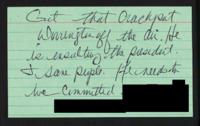 Get that Crackpot
Worrington off the air. He
is insulting the president
& sane people. He needs to
be committed